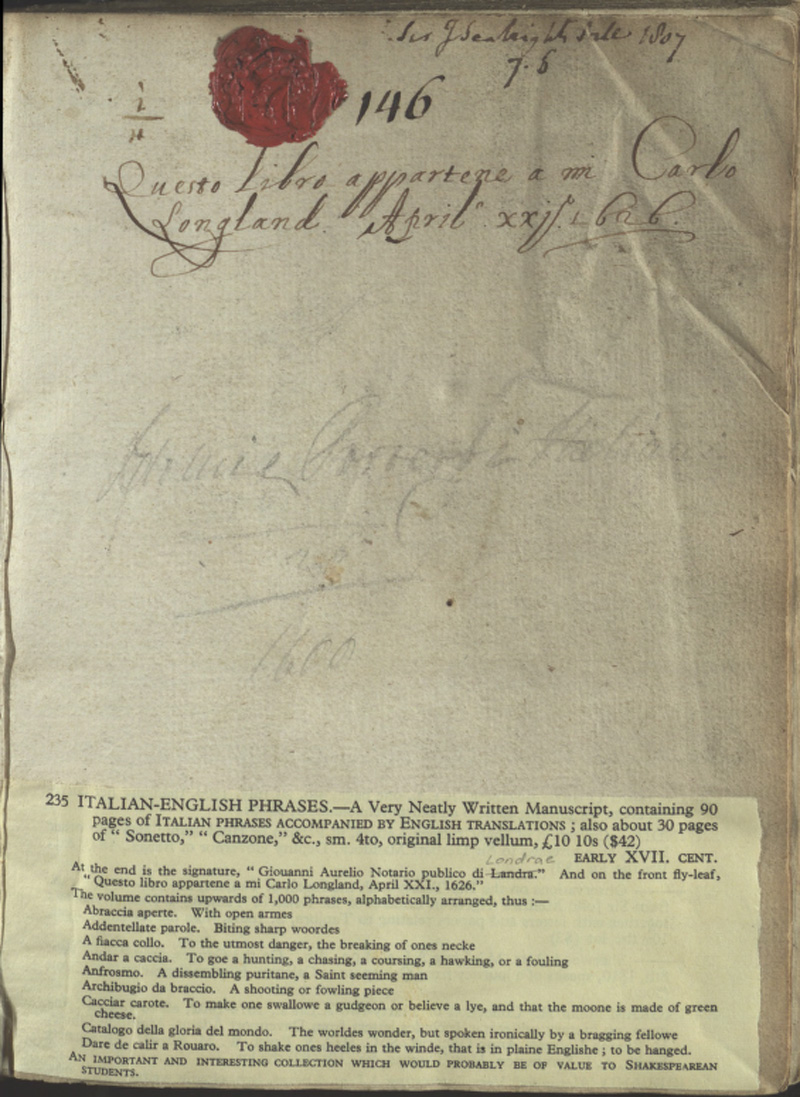 Sir J Seabright sale 1807
7.6
146
Questo libro appartene a mi Carlo
Longland. April xxjº. 1626.
1600
235 ITALIAN-ENGLISH PHRASES.—A Very Neatly Written Manuscript, containing 90
pages of ITALIAN PHRASES ACCOMPANIED BY ENGLISH TRANSLATIONS ; also about 30 pages
of “ Sonetto,” “ Canzone,” &c., sm. 4to, original limp vellum, £10 10s ($42)
Londrae EARLY XVII. CENT.
At the end is the signature, “ Giouanni Aurelio Notario publico di Landra.” And on the front fly-leaf,
“ Questo libro appartene a mi Carlo Longland, April XXI., 1626.”
The volume contains upwards of 1,000 phrases, alphabetically arranged, thus :—
Abraccia aperte. With open armes
Addentellate parole. Biting sharp woordes
A fiacca collo. To the utmost danger, the breaking of ones necke
Andar a caccia. To goe a hunting, a chasing, a coursing, a hawking, or a fouling
Anfrosmo. A dissembling puritane, a Saint seeming man
Archibugio da braccio. A shooting or fowling piece
Cacciar carote. To make one swallowe a gudgeon or believe a lye, and that the moone is made of green
cheese.
Catalogo della gloria del mondo. The worldes wonder, but spoken ironically by a bragging fellowe
Dare de calir a Rouaro. To shake ones heeles in the winde, that is in plaine Englishe ; to be hanged.
AN IMPORTANT AND INTERESTING COLLECTION WHICH WOULD PROBABLY BE OF VALUE TO SHAKESPEAREAN
STUDENTS.